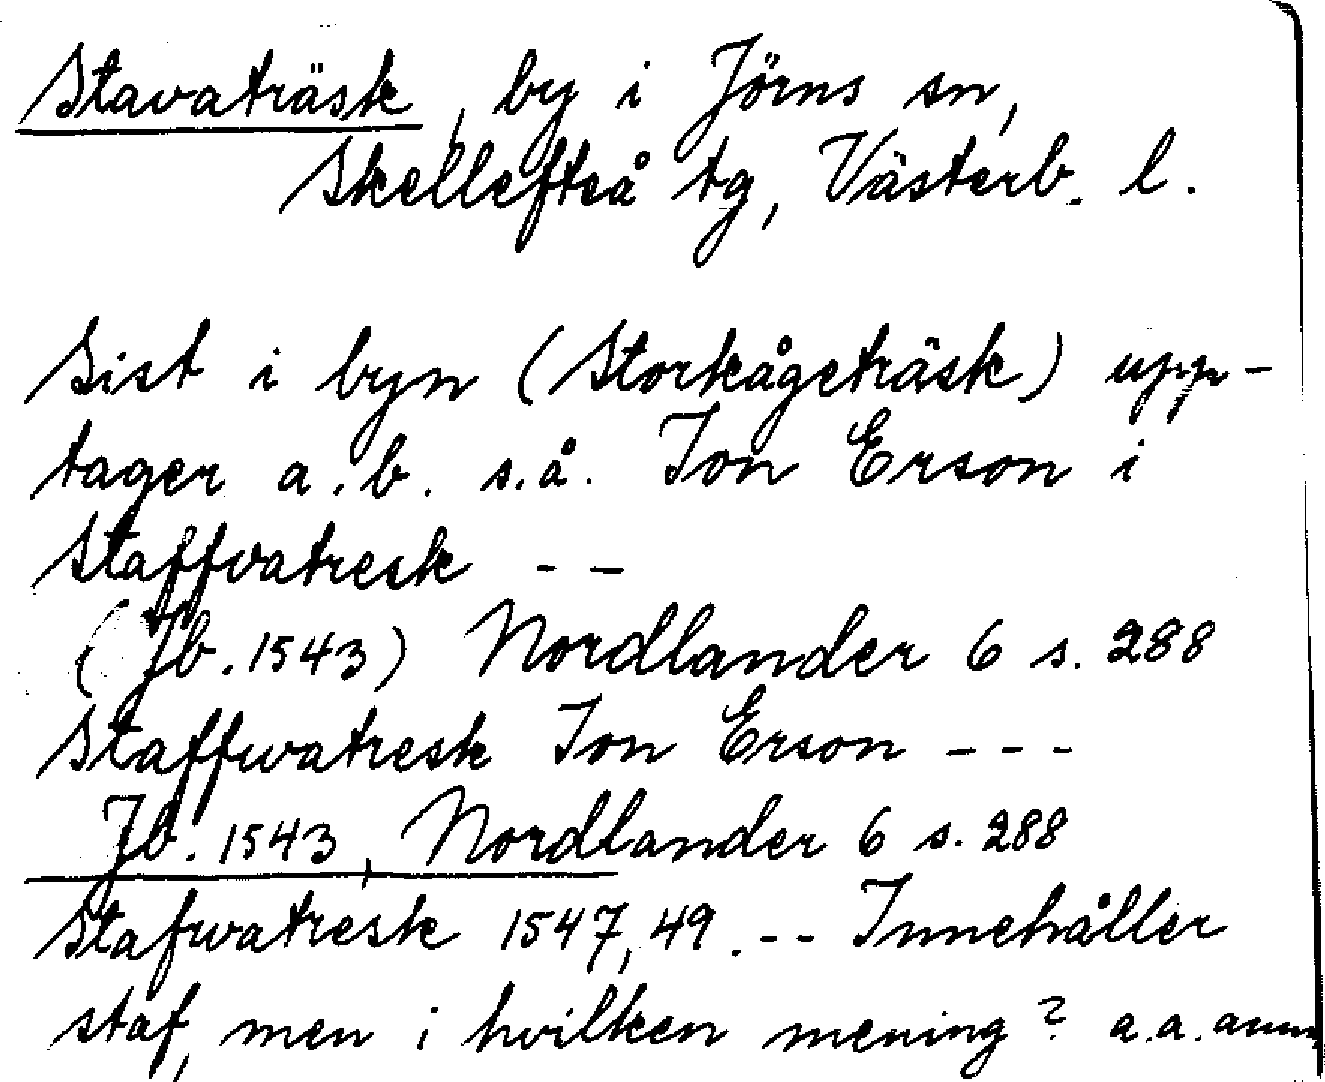 Stavaträsk, by i Jörns sn,
Skellefteå tg, Västerb. l.
Sist i byn (Storkågeträsk) upp-
tager a.b. s.å. Jon Erson i
Staffvatresk - -
(Jb. 1543) Nordlander 6 s. 288
Staffwatresk Jon Erson - - -
Jb. 1543, Nordlander 6 s. 288
Stafwatresk 1547, 49. - - Innehåller
staf, men i hvilken mening? a.a. anm